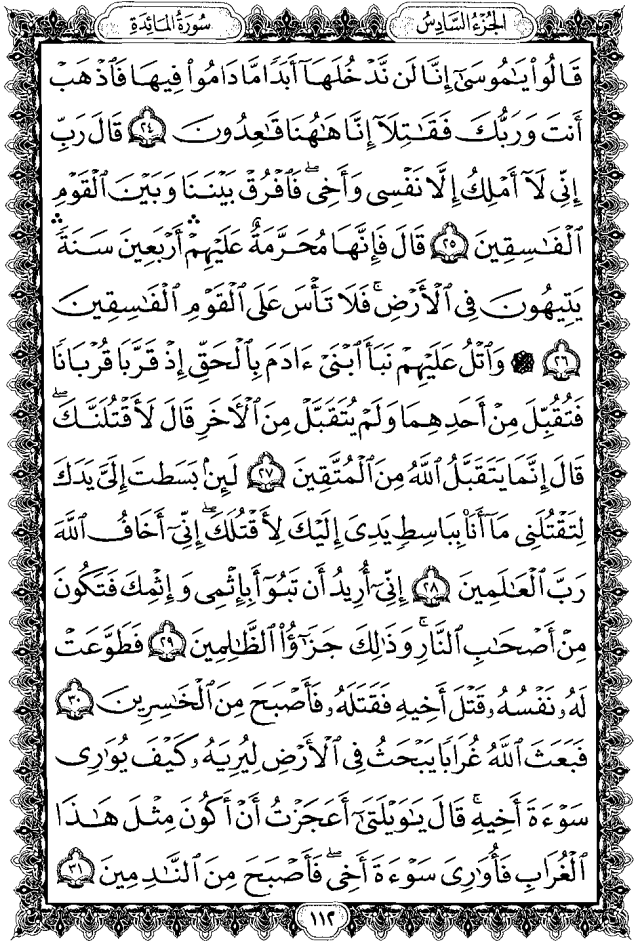 الجُزْءُ السَّادِسُ سُورَةُ المَائِدَةِ
قَالُوا۟ يَـٰمُوسَىٰٓ إِنَّا لَن نَّدْخُلَهَآ أَبَدًا مَّا دَامُوا۟ فِيهَا فَٱذْهَبْ
أَنتَ وَرَبُّكَ فَقَـٰتِلَآ إِنَّا هَـٰهُنَا قَـٰعِدُونَ ٢٤ قَالَ رَبِّ
إِنِّى لَآ أَمْلِكُ إِلَّا نَفْسِى وَأَخِى ۖ فَٱفْرُقْ بَيْنَنَا وَبَيْنَ ٱلْقَوْمِ
ٱلْفَـٰسِقِينَ ٢٥ قَالَ فَإِنَّهَا مُحَرَّمَةٌ عَلَيْهِمْ ۛ أَرْبَعِينَ سَنَةً ۛ
يَتِيهُونَ فِى ٱلْأَرْضِ ۚ فَلَا تَأْسَ عَلَى ٱلْقَوْمِ ٱلْفَـٰسِقِينَ
٢٦ ۞ وَٱتْلُ عَلَيْهِمْ نَبَأَ ٱبْنَىْ ءَادَمَ بِٱلْحَقِّ إِذْ قَرَّبَا قُرْبَانًا
فَتُقُبِّلَ مِنْ أَحَدِهِمَا وَلَمْ يُتَقَبَّلْ مِنَ ٱلْـَٔاخَرِ قَالَ لَأَقْتُلَنَّكَ ۖ
قَالَ إِنَّمَا يَتَقَبَّلُ ٱللَّهُ مِنَ ٱلْمُتَّقِينَ ٢٧ لَئِنۢ بَسَطتَ إِلَىَّ يَدَكَ
لِتَقْتُلَنِى مَآ أَنَا۠ بِبَاسِطٍ يَدِىَ إِلَيْكَ لِأَقْتُلَكَ ۖ إِنِّىٓ أَخَافُ ٱللَّهَ
رَبَّ ٱلْعَـٰلَمِينَ ٢٨ إِنِّىٓ أُرِيدُ أَن تَبُوٓأَ بِإِثْمِى وَإِثْمِكَ فَتَكُونَ
مِنْ أَصْحَـٰبِ ٱلنَّارِ ۚ وَذَٰلِكَ جَزَٰٓؤُا۟ ٱلظَّـٰلِمِينَ ٢٩ فَطَوَّعَتْ
لَهُۥ نَفْسُهُۥ قَتْلَ أَخِيهِ فَقَتَلَهُۥ فَأَصْبَحَ مِنَ ٱلْخَـٰسِرِينَ ٣٠
فَبَعَثَ ٱللَّهُ غُرَابًا يَبْحَثُ فِى ٱلْأَرْضِ لِيُرِيَهُۥ كَيْفَ يُوَٰرِى
سَوْءَةَ أَخِيهِ ۚ قَالَ يَـٰوَيْلَتَىٰٓ أَعَجَزْتُ أَنْ أَكُونَ مِثْلَ هَـٰذَا
ٱلْغُرَابِ فَأُوَٰرِىَ سَوْءَةَ أَخِى ۖ فَأَصْبَحَ مِنَ ٱلنَّـٰدِمِينَ ٣١
١١٢